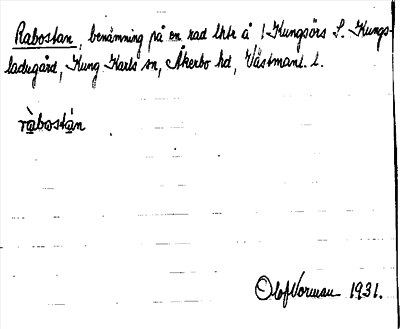 Rabostan, benämning på en rad lhtr å 1 Kungsörs L. Kungs-
ladugård, Kung Karls sn, Åkerbo hd, Västmanl. l.
ràbostàn
Olof Norman 1931.